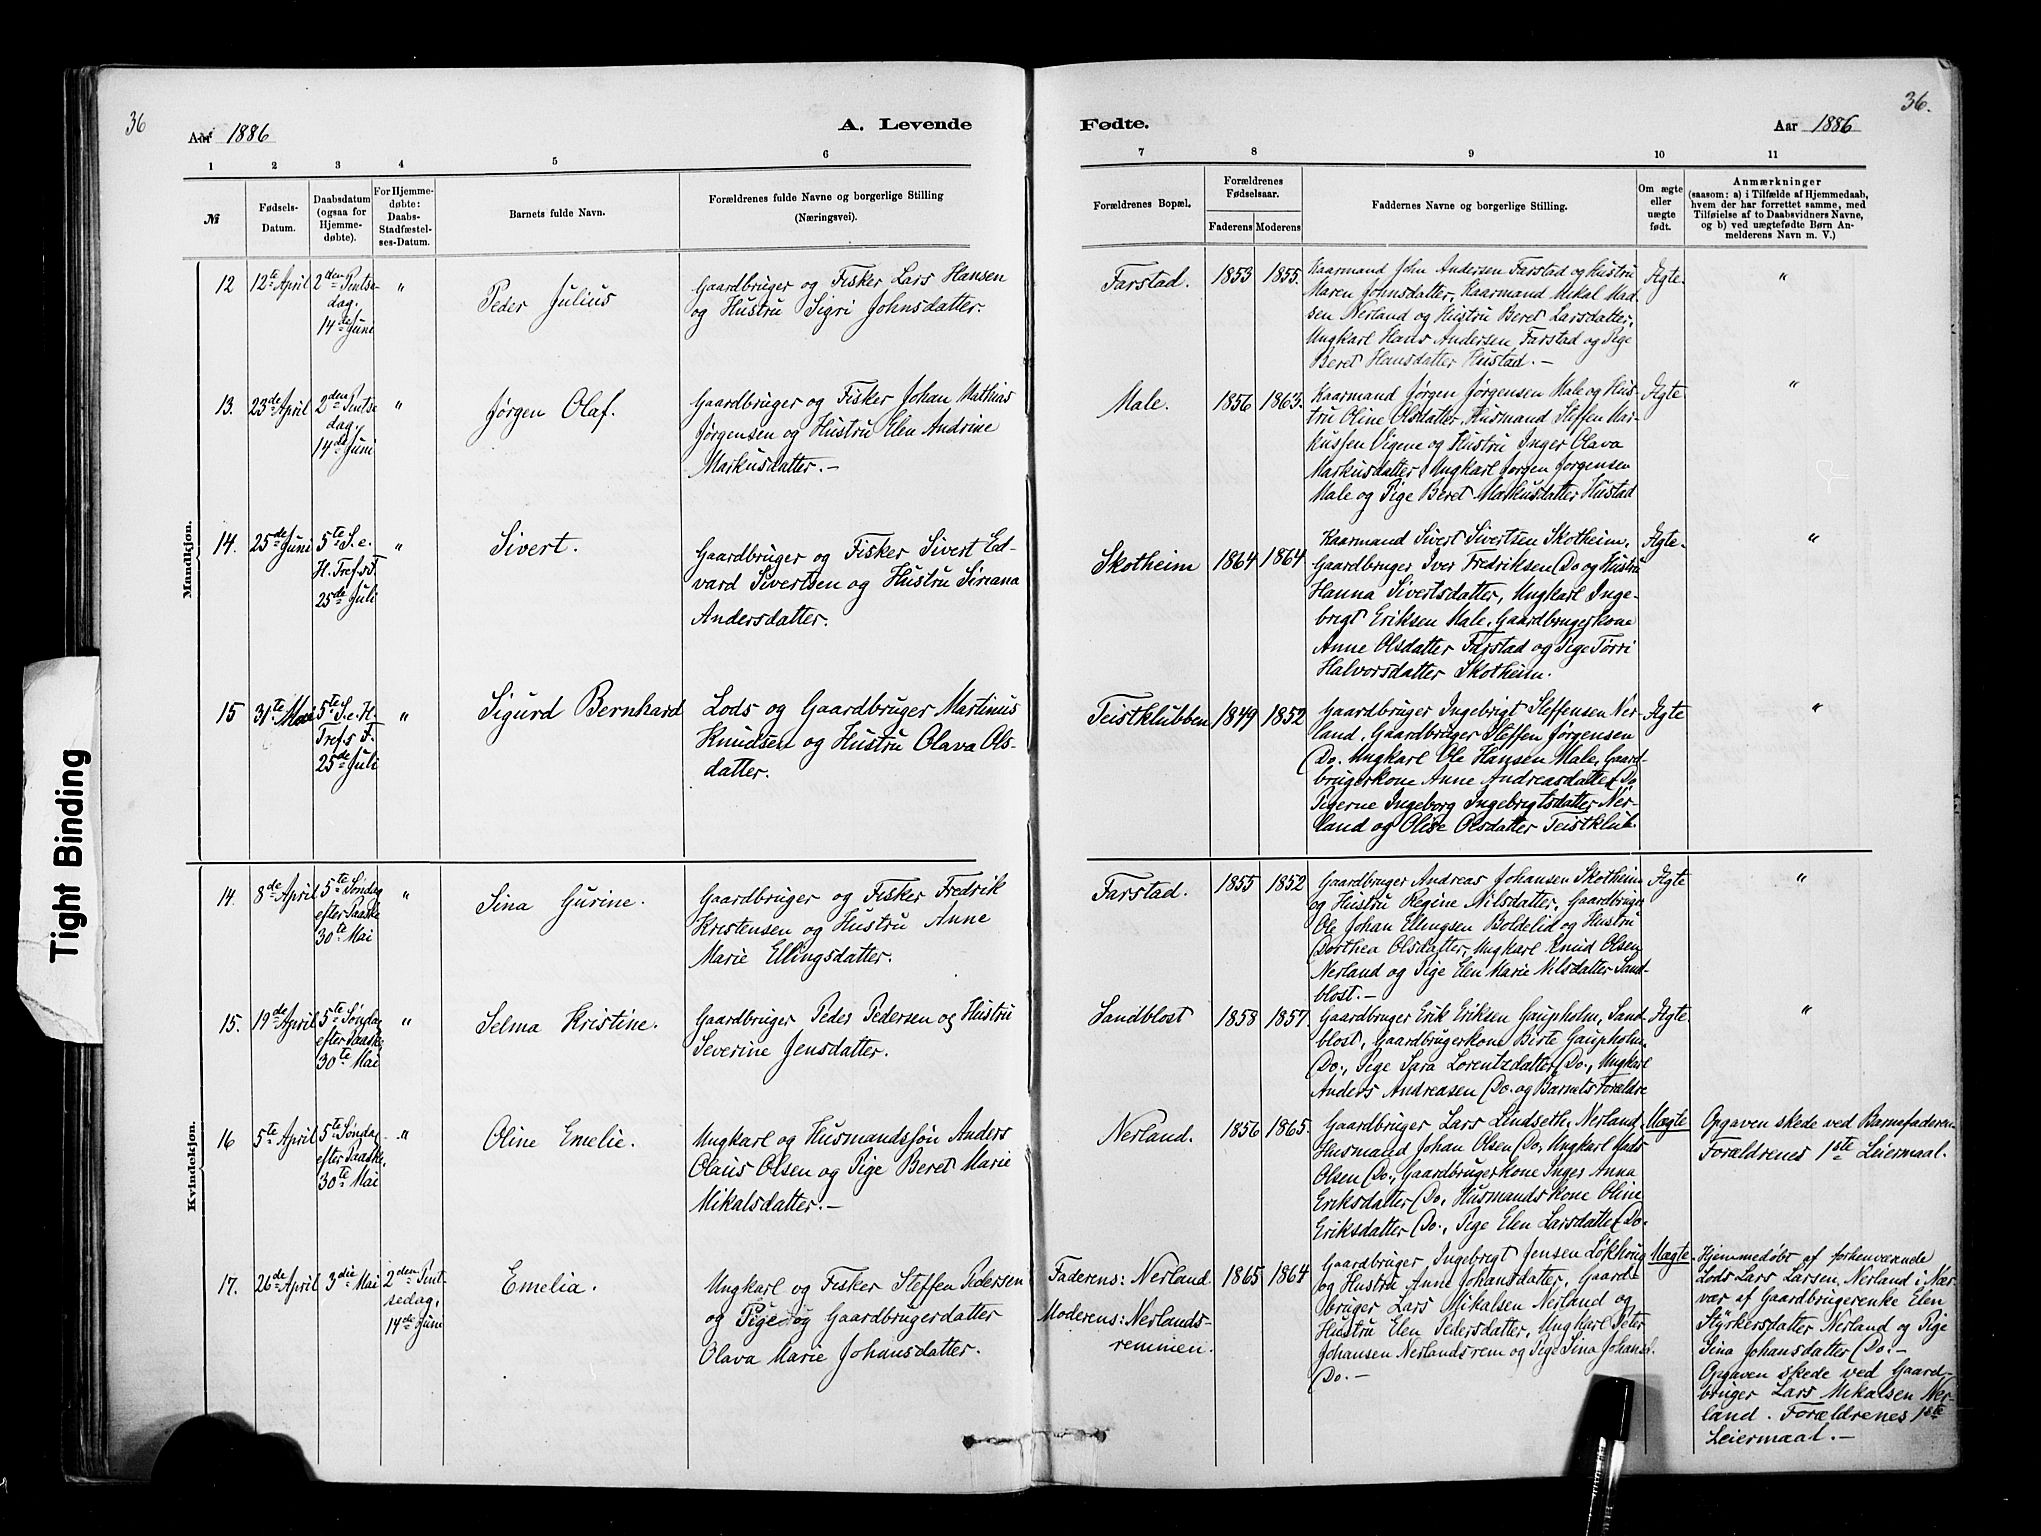 36
Aar 1886
A. Levende
1 2 3 4 5 6
№
Fødsels-
Datum.
Daabsdatum
(ogsaa for
Hjemme-
døbte).
For Hjemme-
døbte:
Daabs-
Stadfæstel-
ses-Datum.
Barnets fulde Navn.
Forældrenes fulde Navne og borgerlige Stilling
(Næringsvei).
Mandkjøn.
12
12te April
2den Pintse-
dag.
14de Juni
"
Peder Julius
Gaardbruger og Fisker Lars Hansen
og Hustru Sigri Johnsdatter.
13.
23de April
2den Pintse
dag.
14de Juni
"
Jørgen Olaf.
Gaardbruger og Fisker Johan Mathias
Jørgensen og Hustru Elen Andrine
Markusdatter.—
14.
25de Juni
5te S. e.
H. Tref.s F.
25de Juli
"
Sivert.
Gaardbruger og Fisker Sivert Ed-
vard Sivertsen og Hustru Siriana
Andersdatter.
15
31te Mai
5te S. e. H.
Tref.s F.
25de Juli
"
Sigurd Bernhard
Lods og Gaardbruger Martinus
Knudsen og Hustru Olava Ols-
datter.
Kvindekjøn.
14.
8de April
5te Søndag
efter Paaske
30te Mai
"
Sina Gurine.
Gaardbruger og Fisker Fredrik
Kristensen og Hustru Anne
Marie Ellingsdatter.
15.
19de April
5te Søndag
efter Paaske,
30te Mai
"
Selma Kristine.
Gaardbruger Peder Pedersen og Hustru
Severine Jensdatter.
16
5te April
5te Søndag
efter Paaske,
30te Mai
"
Oline Emelie.
Ungkarl og Husmandssøn Anders
Olaus Olsen og Pige Beret Marie
Mikalsdatter.—
17.
26de April
3die Mai
2den Pint-
sedag,
14de Juni
Emelia.
Ungkarl og Fisker Steffen Pedersen
og Pige og Gaardbrugerdatter
Olava Marie Johansdatter.
Tight Binding
36.
Fødte.
Aar 1886
7 8 9 10 11
Forældrenes Bopæl.
Forældrenes
Fødselsaar.
Faderens Moderens
Faddernes Navne og borgerlige Stilling.
Om ægte
eller
uægte
født.
Anmærkninger
(saasom: a) i Tilfælde af Hjemmedaab,
hvem der har forrettet samme, med
Tilføielse af to Daabsvidners Navne,
og b) ved uægtefødte Børn An-
melderens Navn m. V.)
Farstad.
1853 1855.
Kaarmand John Andersen Farstad og Hustru
Maren Johnsdatter, Kaarmand Mikal Mad-
sen Nerland og Hustru Beret Larsdatter,
Ungkarl Hans Andersen Farstad og Pige
Beret Hansdatter Hustad.—
Ægte.
"
Male.
1856 1863.
Kaarmand Jørgen Jørgensen Male og Hus-
tru Oline Olsdatter, Husmand Steffen Mar-
kussen Vigene og Hustru Inger Olava
Markusdatter, Ungkarl Jørgen Jørgensen
Male og Pige Beret Markusdatter Hustad
Ægte.
"
Skotheim
1864 1864.
Kaarmand Sivert Sivertsen Skotheim,
Gaardbruger Iver Fredriksen Do og Hustru
Hanna Sivertsdatter, Ungkarl Inge-
brigt Eriksen Male, Gaardbrugerkone
Anne Olsdatter Farstad og Pige Torri
Halvorsdatter Skotheim.
Ægte.
"
Teistklubben
1849 1852
Gaardbruger Ingebrigt Steffensen Ner-
land, Gaardbruger Steffen Jørgensen
Do. Ungkarl Ole Hansen Male, Gaard-
brugerkone Anne Andreasdatter Do,
Pigerne Ingeborg Ingebrigtsdatter Ner-
land og Olise Olsdatter Teistklub.
Ægte
"
Farstad.
1855 1852
Gaardbruger Andreas Johansen Skotheim
og Hustru Regine Nilsdatter, Gaardbruger
Ole Johan Ellingsen Boldelid og Hustru
Dorthea Olsdatter, Ungkarl Knud Olsen
Nerland og Pige Elen Marie Nilsdatter Sand-
blost.—
Ægte
"
Sandblost
1858 1857.
Gaardbruger Erik Eriksen Gaupholm, Sand-
blost, Gaardbrugerkone Birte Gaupholm,
Do., Pige Sara Lorentzdatter Do., Ungkarl
Anders Andreasen Do. og Barnets Forældre
Ægte.
"
Nerland.
1856 1865.
Gaardbruger Lars Lindseth, Nerland,
Husmand Johan Olsen Do, Ungkarl Mads
Olsen Do., Gaardbrugerkone Inger Anna
Eriksdatter Do, Husmandskone Oline
Eriksdatter Do., Pige Elen Larsdatter Do.
Uægte
Opgaven skede ved Barnefaderen.
Forældrenes 1ste Leiermaal.
Faderens: Nerland
Moderens: Nerlands-
remmen.
1865 1864
Gaardbruger Ingebrigt Jensen Løkhaug
og Hustru Anne Johansdatter, Gaard-
bruger Lars Mikalsen Nerland og
Hustru Elen Pedersdatter, Ungkarl Peter
Johansen Nerlandsrem og Pige Sina Johansd.
Do.—
Uægte
Hjemmedøbt af forhenværende
Lods Lars Larsen, Nerland i Nær-
vær af Gaardbrugerenke Elen
Styrkersdatter Nerland og Pige
Sina Johansdatter Do.—
Opgaven skede ved Gaard-
bruger Lars Mikalsen Ner-
land. Forældrenes 1ste
Leiermaal.—